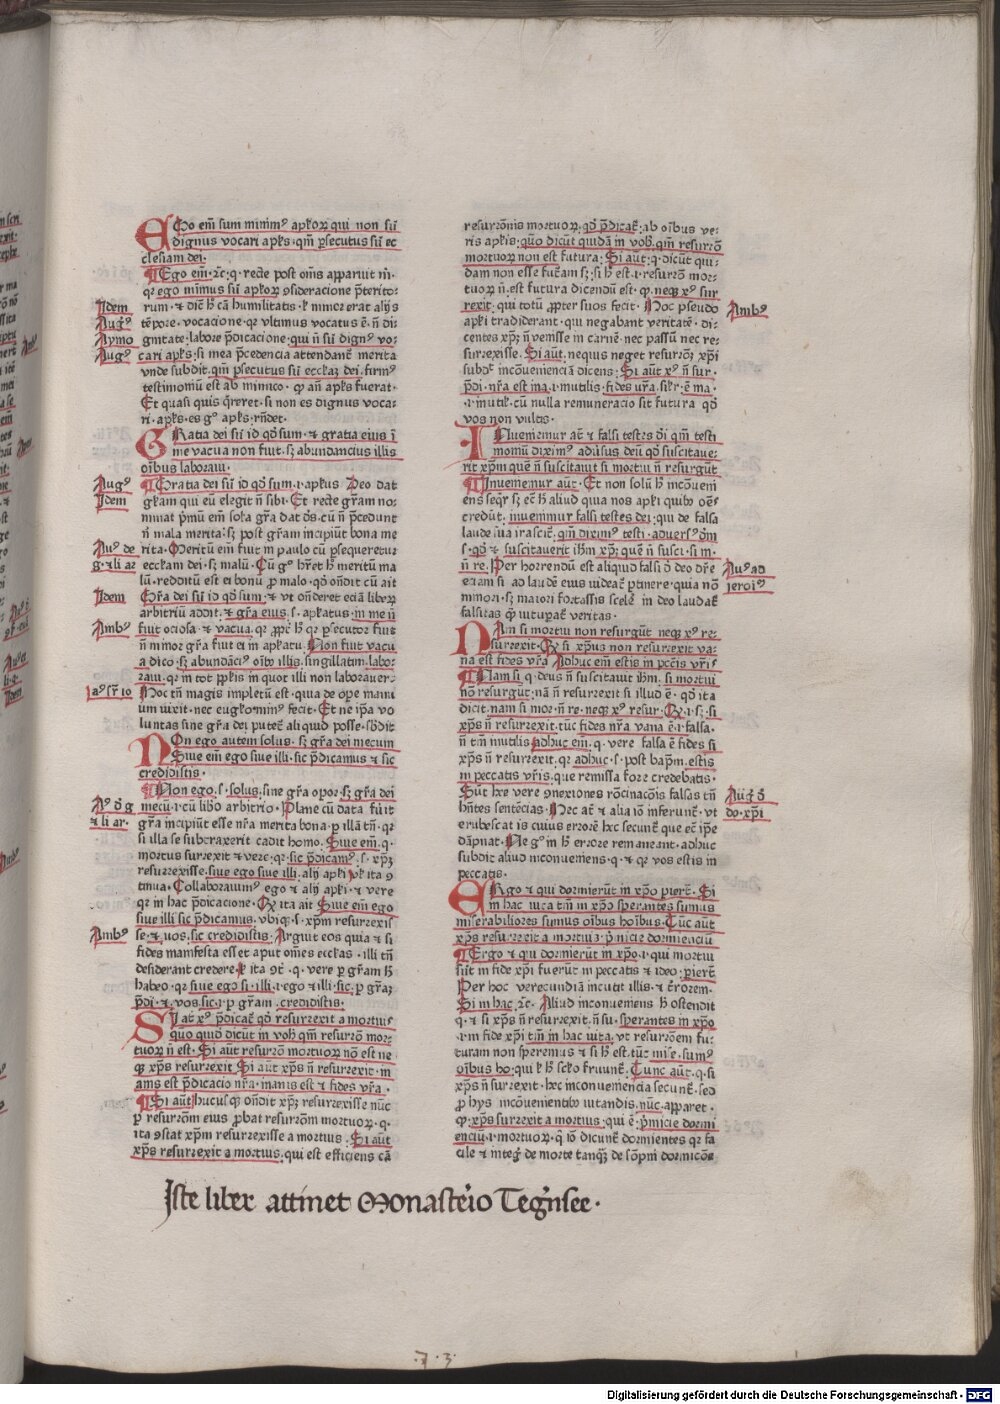 EGo em̄ sum minimꝰ apłoꝝ qui non sū
dignus vocari apłs· qm̄ ꝑsecutus sū ec
clesiam dei·
¶Ego em̄ ·⁊c̄· q· recte post om̄s apparuit m̄·
qꝛ ego minimus sū apłoꝝ ꝯsideracione p̄terito⸗
rum· ⁊ dic̄ hͨ cā humilitatis·
Idem
Augꝰ
tēpore· vocacione· qꝛ vltimus vocatus ē· n̄ di⸗
Aymo
gnitate· labore p̄dicacione· qui n̄ sū dignꝰ vo⸗
Augꝰ
cari apłs· si mea p̄cedencia attendant̄ merita
vnde subdit· qm̄ ꝑsecutus sū eccłaꝫ dei· firmꝰ
testimoniū est ab inimico· ꝙ an̄ apłs fuerat·
Et quasi quis q̄reret· si non es dignus voca⸗
ri· apłs· es gͦ apłs· rn̄det·
GRatia dei sū id qd̄ sum· ⁊ gratia eius ī
me vacua non fuit· sꝫ abundancius illis
oībus laboraui·
Augꝰ
¶Gratia dei sū id qd̄ sum· ı· apłus· Deo dat
Idem
gr̄am qui eū elegit n̄ sibi· Et recte gr̄am no⸗
minat p̄mū· em̄ sola gr̄a dat̄ ds̄· cū n̄ p̄cedunt
n̄ mala merita· sꝫ post gr̄am incipiūt bona me
Auꝰ de
rita· Meritū em̄ fuit in paulo cū ꝑsequeretur
g· ⁊ li ar
eccłam dei· sꝫ malū· Cū gͦ hr̄et hͨ meritū ma
lū· redditū est ei bonū ꝓ malo· qd̄ on̄dit cū ait
Idem
Gr̄a dei sū id qd̄ sum· ⁊ vt on̄deret eciā liberꝫ
arbitriū addit· ⁊ gr̄a eius· s· apłatus· in me n̄
Ambꝰ
fuit ociosa· ⁊ vacua· qꝛ ꝑsecutor fuit
n̄ minor gr̄a fuit ei in apłatu· Non fuit vacu
a dico· sꝫ abundāciꝰ oīb· illis· singillatim· labo⸗
raui· qꝛ in tot ppłis in quot illi non laborauer̄·
Hoc tn̄ magis impletū est· quia de ope manu
um vixit· nec fecit· Et ne ip̄a vo
luntas sine gr̄a dei putet̄ aliquid posse· sb̄dit
NOn ego autem solus· sꝫ gr̄a dei mecum
Siue em̄ ego siue illi· sic p̄dicamus ⁊ sic
credidistis·
¶Non ego· s· solus· sine gr̄a opor· sꝫ gr̄a dei
mecū· ı· cū libero arbitrio· Plane cū data fuit
⁊ li ar·
gr̄a incipiūt esse nr̄a merita bona· ꝑ illā tn̄· qꝛ
si illa se subtraxerit cadit homo· Siue em̄· q·
mortus surrexit ⁊ vere· qꝛ sic p̄dicamꝰ· s· xp̄ꝫ
resurrexisse· siue ego siue illi· alij apłi
tinua· Collaborauimꝰ ego ⁊ alij apłi· ⁊ vere
qꝛ in hac p̄dicacione· ita ait Siue em̄ ego
siue illi sic p̄dicamus· vbiqꝫ· s· xp̄m resurrexis
Ambꝰ
se· ⁊ uos· sic credidistis· Arguit eos quia ⁊ si
fides manifesta esset aput om̄es eccłas· illi tn̄
desiderant credere· q· vere ꝑ gr̄am hͨ
habeo· qꝛ siue ego· si· illi· ı· ego ⁊ illi· sic· ꝑ gr̄aꝫ
p̄di· ⁊ vos· sic· ı· ꝑ gr̄am· credidistis·
SI at̄ xꝰ p̄dicat̄ qd̄ resurrexit a mortuis
quō quid dicūt in vob̄ qm̄ resurrō mor⸗
tuoꝝ n̄ est· Si aūt resurrō mortuoꝝ nō est ne
qꝫ xp̄s resurrexit Si aūt xp̄s n̄ resurrexit· in
anis est p̄dicacio nr̄a· inanis est ⁊ fides vr̄a·
¶Si aūt Hucusqꝫ on̄dit xp̄ꝫ resurrexisse nūc
ꝑ resurrōm eius ꝓbat resurrōm mortuoꝝ· q·
ita ꝯstat xp̄m resurrexisse a mortuis· Si aūt
xp̄s resurrexit a mortuis· qui est efficiens cā
resurrōnis mortuoꝝ· qd̄ p̄dicat̄· ab oībus ve⸗
ris apłis· quō dicūt quidā in vob̄· qm̄ resurrō
mortuoꝝ non est futura· Si aūt· q· dicūt qui⸗
dam non esse futām sꝫ· si hͨ est· ı· resurrō mor⸗
tuoꝝ n̄ est futura dicendū est· ꝙ· neqꝫ xꝰ sur
rexit· qui totū ꝓpter suos fecit· Hoc pseudo
Ambꝰ
apłi tradiderant· qui negabant veritatē· di⸗
centes xp̄ꝫ n̄ venisse in carnē· nec passū nec re⸗
surrexisse· Si aūt· nequis neget resurrōꝫ xp̄i
subdit incōuenienciā dicens· Si aūt xꝰ n̄ sur·
p̄di· nr̄a est ina· ı· inutilis· fides vr̄a· sil̄r· ē ina·
·ı· inutil̄· cū nulla remuneracio sit futura qd̄
vos non vultis·
INuenimur at̄ ⁊ falsi testes dī qm̄ testi
moniū diximꝰ aduersus deū qd̄ suscitaue⸗
rit xp̄m quē n̄ suscitauit si mortui n̄ resurgūt
¶Inuenimur aūt· Et non solū hͨ incōueni
ens seqr̄ sꝫ ec̄ hͨ aliud quia nos apłi quib oēs
credūt· inuenimur falsi testes dei· qui de falsa
laude sua irascit̄· qm̄ diximꝰ testi· aduersꝰ dm̄
s· qd̄ ⁊ suscitauerit ih̄m xp̄ꝫ· quē n̄ susci· si m·
Auꝰ ad
n̄ re· Per horrendū est aliquid falsi d̄ deo dr̄e
jeroīꝰ
eciam si ad laudē eius videat̄ ꝑtinere· quia nō
minori· sꝫ maiori fortassis scele in deo laudat̄
falsitas ꝙ̄ vitupat̄ veritas·
NAm si mortui non resurgūt neqꝫ xꝰ re⸗
surrexit· Qꝫ si xp̄us non resurrexit va⸗
na est fides vr̄a Adhuc em̄ estis in pctīs vr̄is
¶Nam si q· deus n̄ suscitauit ih̄m· si mortui
nō resurgūt· nā n̄ resurrexit si illud ē· qd̄ ita
dicit· nam si mor· n̄ re· neqꝫ xꝰ resur· ı· sꝫ· si
xp̄s n̄ resurrexit· tūc fides nr̄a vana ē· ı· falsa·
n̄ tm̄ inutilis adhuc em̄· q· vere falsa ē fides si
xp̄s n̄ resurrexit· qꝛ adhuc· s· post bapm̄· estis
in peccatis vr̄is· que remissa fore credebatis·
Sūt hec vere ꝯnexiones rōcinacōis falsas tn̄
hn̄tes sentēcias· Nec at̄ ⁊ alia iō inferunt̄· vt
do· xp̄i
erubescat is cuius errorē hec secunt̄ que ec̄ ip̄e
dāpnat· Ne gͦ in hͨ errore remaneant· adhuc
subdit aliud inconueniens· q· ⁊ qꝛ vos estis in
peccatis·
ERgo ⁊ qui dormierūt in xp̄o pierūt· Si
in hac vita tm̄ in xp̄o sperantes sumus
miserabiliores sumus oībus hoībus· Tūc aūt
xp̄s resurrexit a mortuis p̄micie dormienciū
¶Ergo ⁊ qui dormierūt in xp̄o· ı· qui mortui
sūt in fide xp̄i fuerūt in peccatis ⁊ ideo· pierūt
Per hoc verecundiā incutit illis· ⁊ t̄rorem·
Si in hac ⁊c̄· Aliud inconueniens hͨ ostendit
q· ⁊ si xp̄s n̄ resurrexit· n̄ su· sperantes in xp̄o
·ı· in fide xp̄i tm̄ in hac vita· vt resurrōem fu⸗
turam non speremus ⁊ si hͨ est· tūc mīse· sumꝰ
oībus ho· Tunc aūt· q· si
xp̄s n̄ surrexit· hec inconueniencia secunt̄· sed
ꝓ hijs incōuenientib vitandis· nūc· apparet·
ꝙ· xp̄us surrexit a mortuis· qui ē· p̄micie dormi
enciū· ı· mortuoꝝ· q̄ iō dicunt̄ dormientes qꝛ fa
cile ⁊ de morte tanqꝫ de sōpni dormicōe
Iste liber attinet Monasterio Tegernsee·
·7·3·
Digitalisierung gefördert durch die Deutsche Forschungsgemeinschaft - DFG